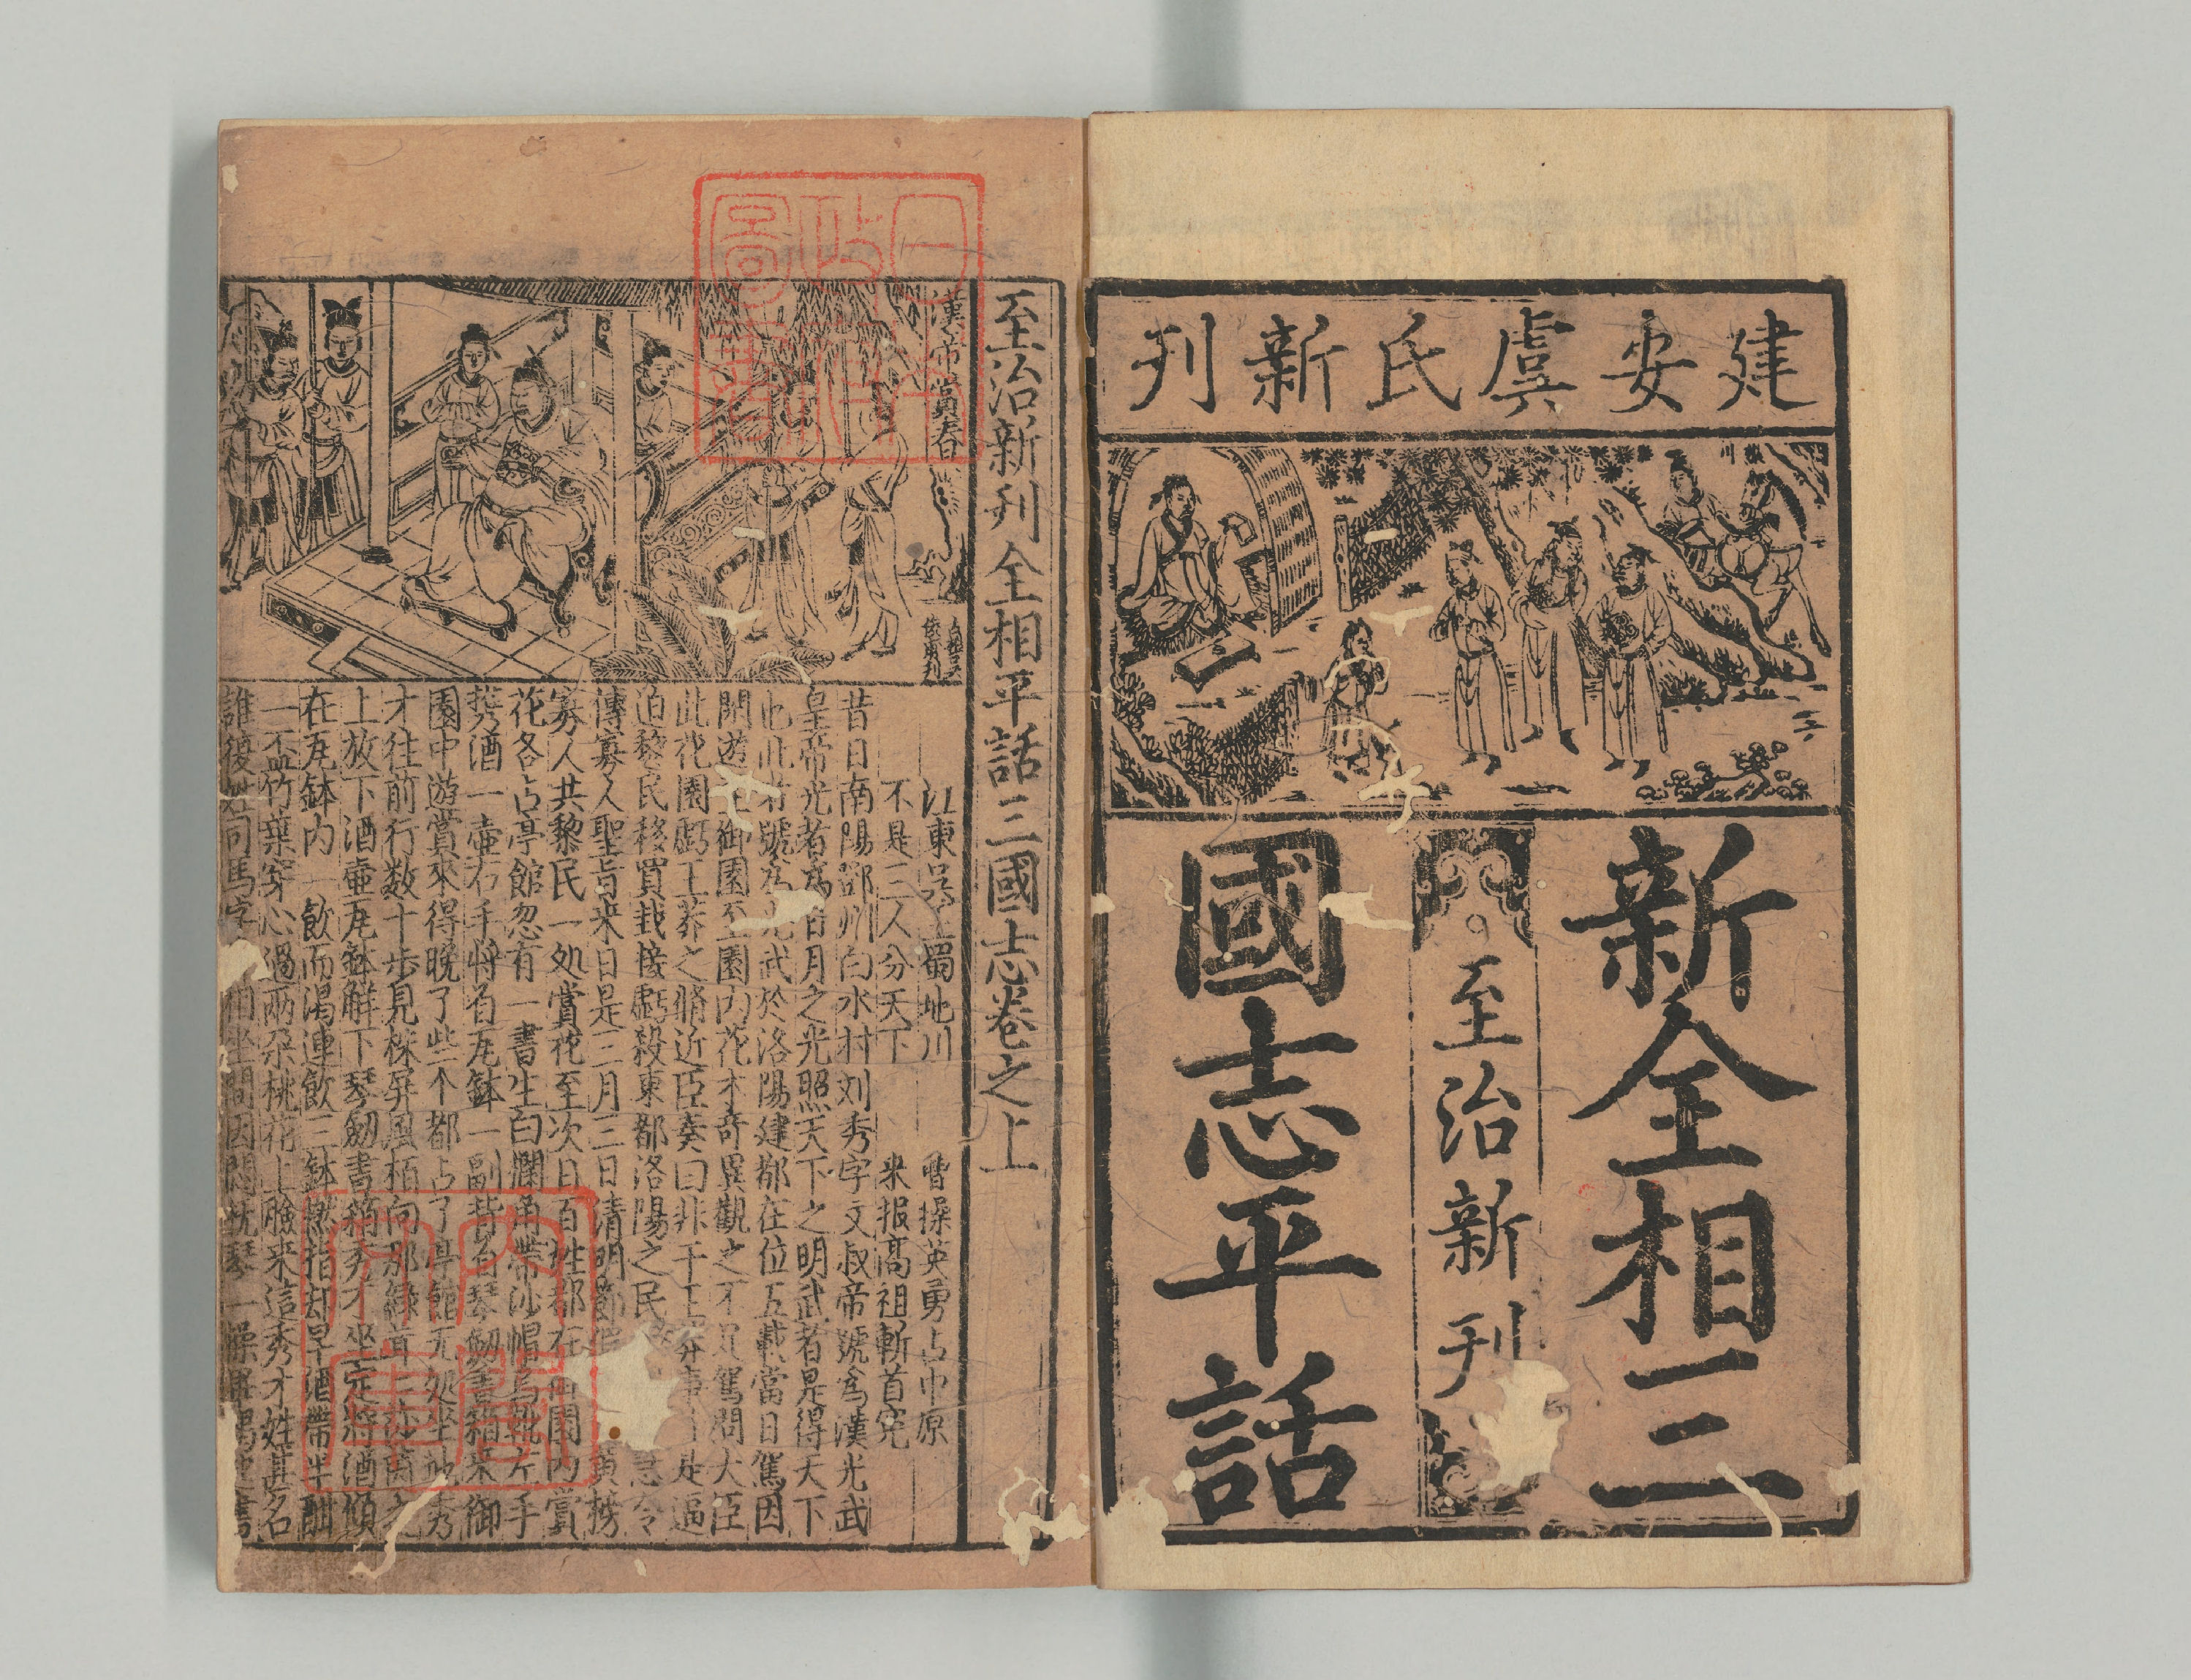 建安虞氏新刊
新全相三
至治新刊
國志平話
至治新刊全相平話三國志卷之上
漢帝賞春
江東吳 蜀地川 曹操英勇占中原
不是三人分天下 来报高祖斬首寃
昔日南陽鄧州白水村刘秀字文叔帝號爲漢光武
皇帝光者爲日月之光照天下之明武者是得天下
也此者號爲光武於洛陽建都在位五載當日駕因
閑遊至御園至園内花木奇異觀之不足駕問大臣
此花園虧王莽之脩近臣奏曰非干王莽事是逼
迫黎民移買栽接虧殺東都洛陽之民 急令
傳寡人聖旨来日是三月三日清明節假 黄榜
寡人共黎民一処賞花至次日百姓都在 園内賞
花各占亭館忽有一書生白襴角帶沙帽烏靴左手
携酒一壷右手將着瓦鉢一副背着琴劒書箱来御
園中遊賞來得晚了些个都占了亭館无処坐地秀
才往前行数十步見株屏風栢向那緑茸茸莎茵之
上放下酒壷瓦鉢觧下琴劒書箱秀才坐定將酒傾
在瓦鉢内一飲而渴連飲三鉢撚指却早酒帶半酣
一盃竹葉穿心過兩朶桃花上臉来這秀才姓甚名
誰復姓司馬字 相坐間因悶抚琴一操 書